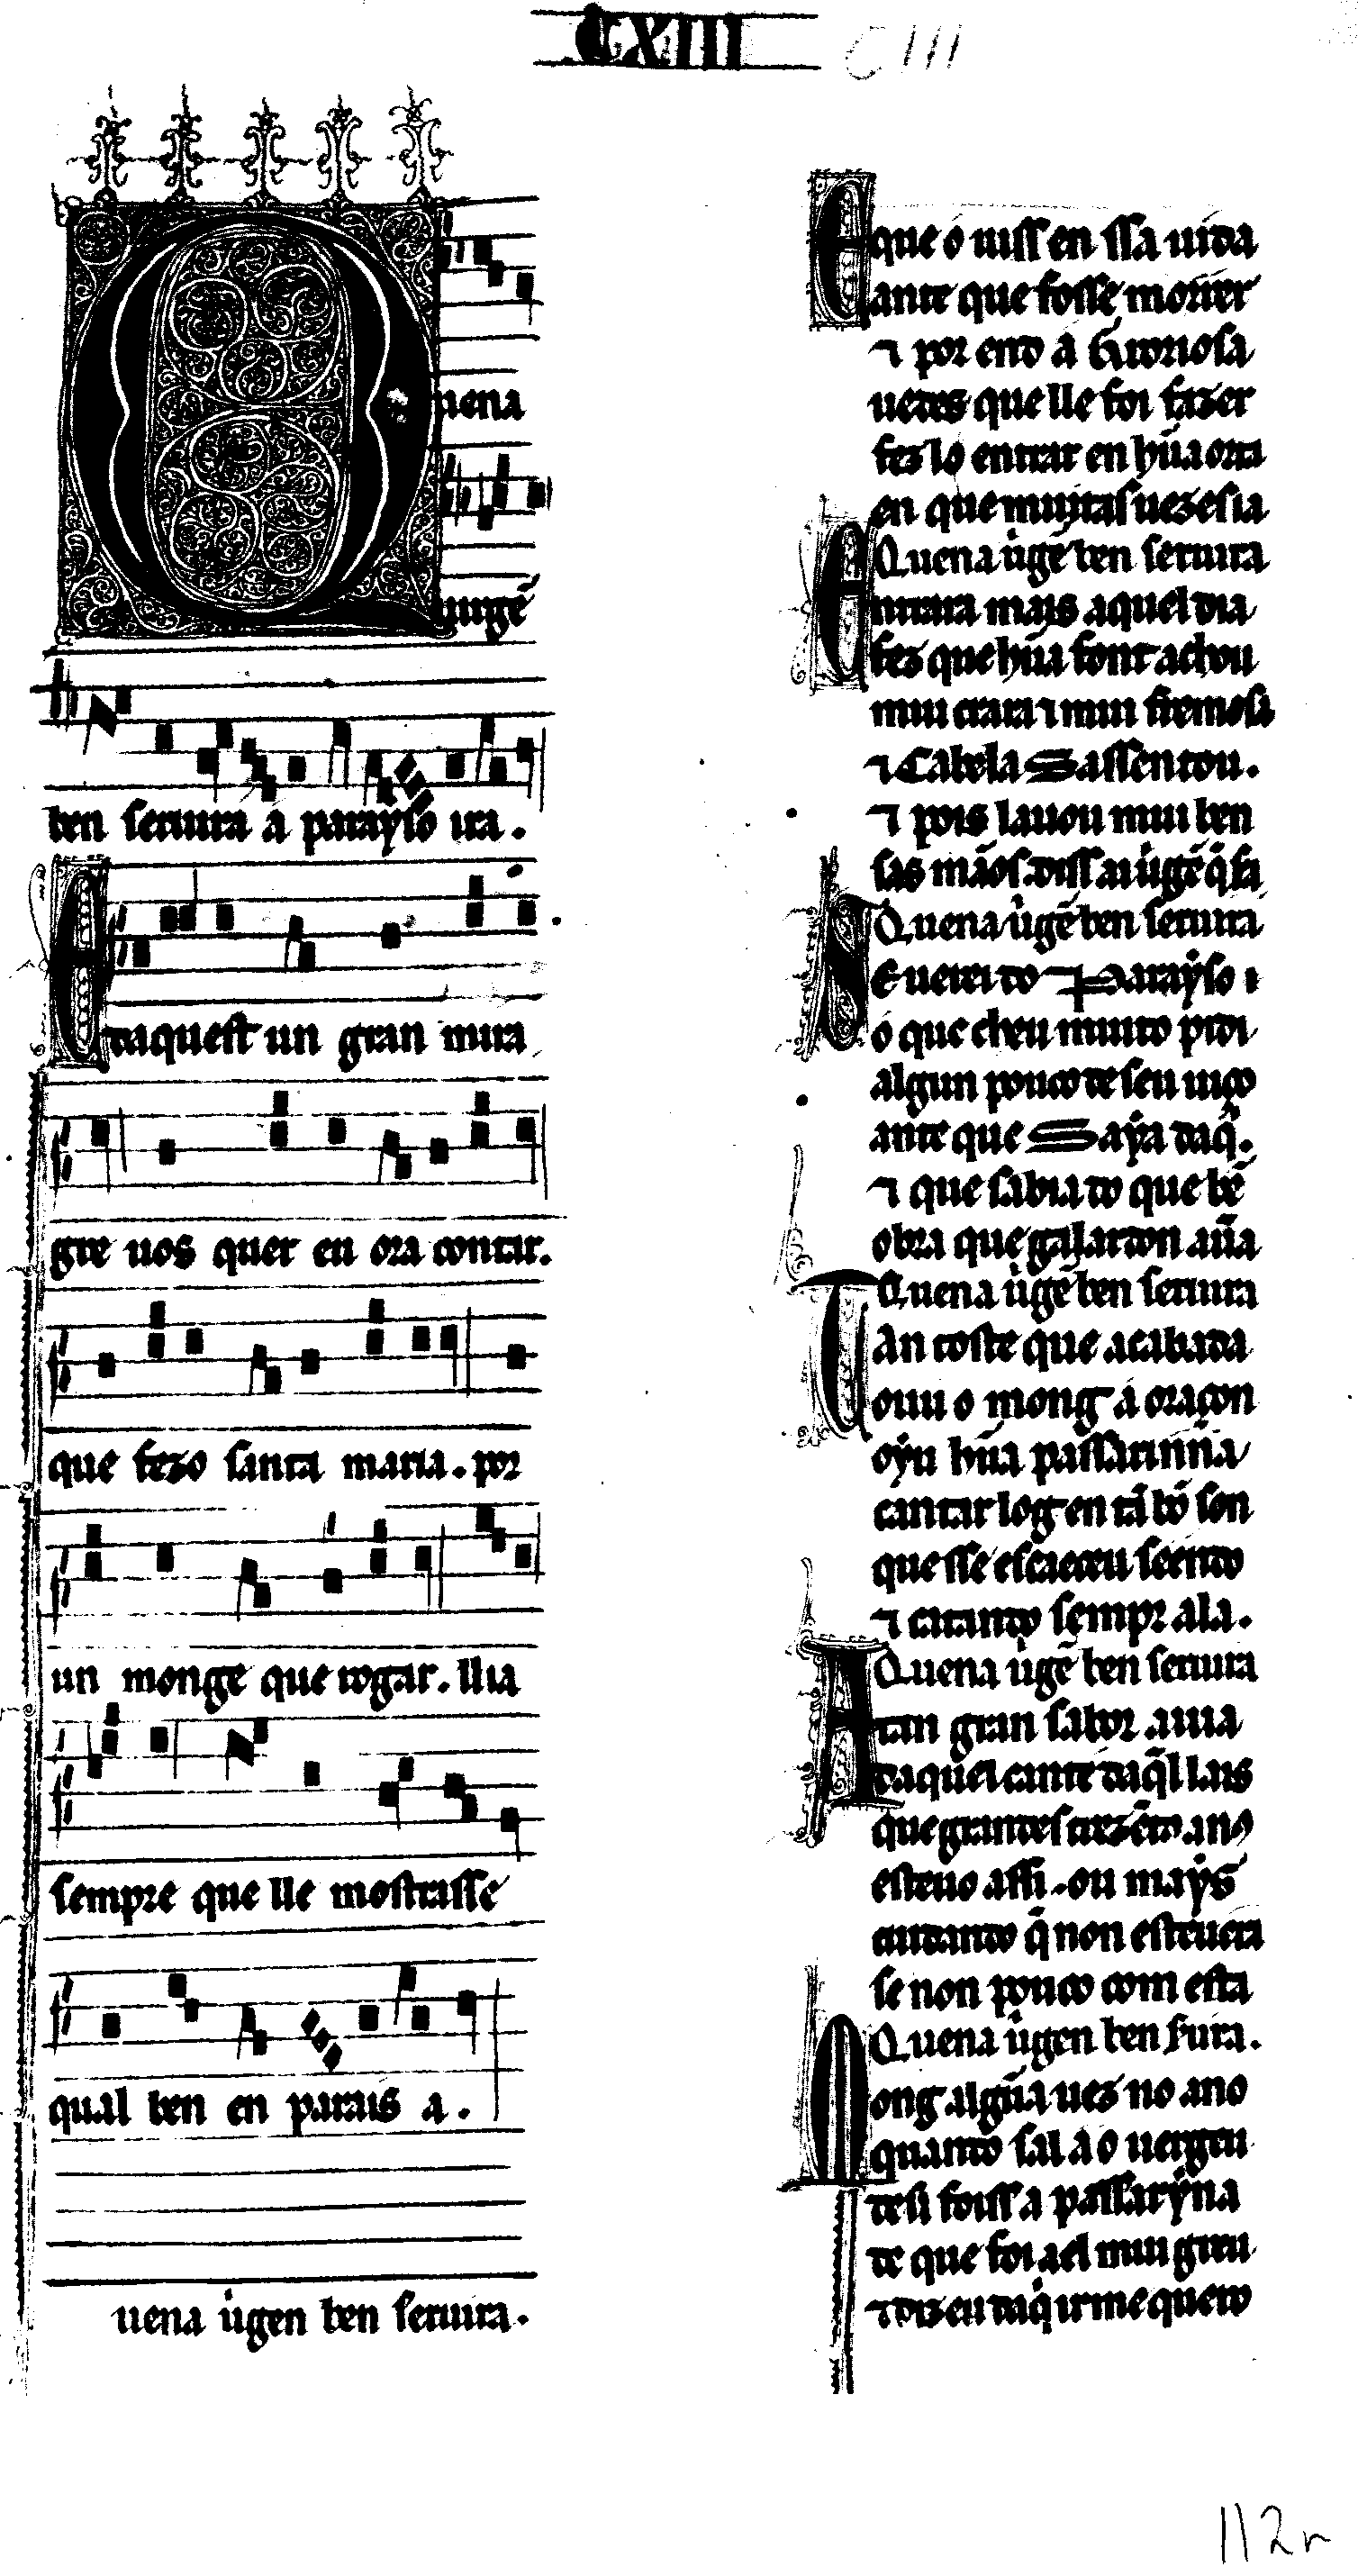 CXIII CIII
Quena
uirgẽ
ben seruira a parayso ira.
E daquest un gran mira
gre uos quer eu ora contar.
que fezo santa maria. por
un monge que rogar. llia
sempre que lle mostrasse
qual ben en parais a.
uena uigen ben seruira.
E que o uiss en ssa uida
ante que fosse morrer
⁊ por end a Groriosa
uedes que lle foi fazer
fez lo entrar en hũa orta
en que muitas uezes ia
Quena uigẽ ben seruira
Entrara mais aquel dia
fez que hũa font achou
mui crara ⁊ mui fremosa
⁊ cabela Sassentou.
⁊ pois lauou mui ben
sas mãos. diss ai uigẽ q̃ fa
Quena uigẽ ben seruira
Se uerei do Parayso
o que ch eu muito pidi
algun pouco de seu uiço
ante que Saya daq̃.
⁊ que sabia do que bẽ
obra que galardon auã
Quena uigẽ ben seruira
Tan toste que acabada
ouu o mong a oraçon
oyu hũa passarinna
cantar log en tã bõ son
que sse escaeceu seendo
⁊ catando sempr ala.
Quena uigẽ ben seruira
Atan gran sabor auia
daquel cant e daq̃l lais
que grandes trezẽtos anos
esteuo assi. ou mays
cuidando q̃ non esteuera
se non pouco com esta
Quena uigen ben sura.
Mong algũa uez no ano
quando sal a o uergeu
desi foiss a passaryna
de que foi a el mui greu
⁊ diz eu daq̃ irme quero
112r